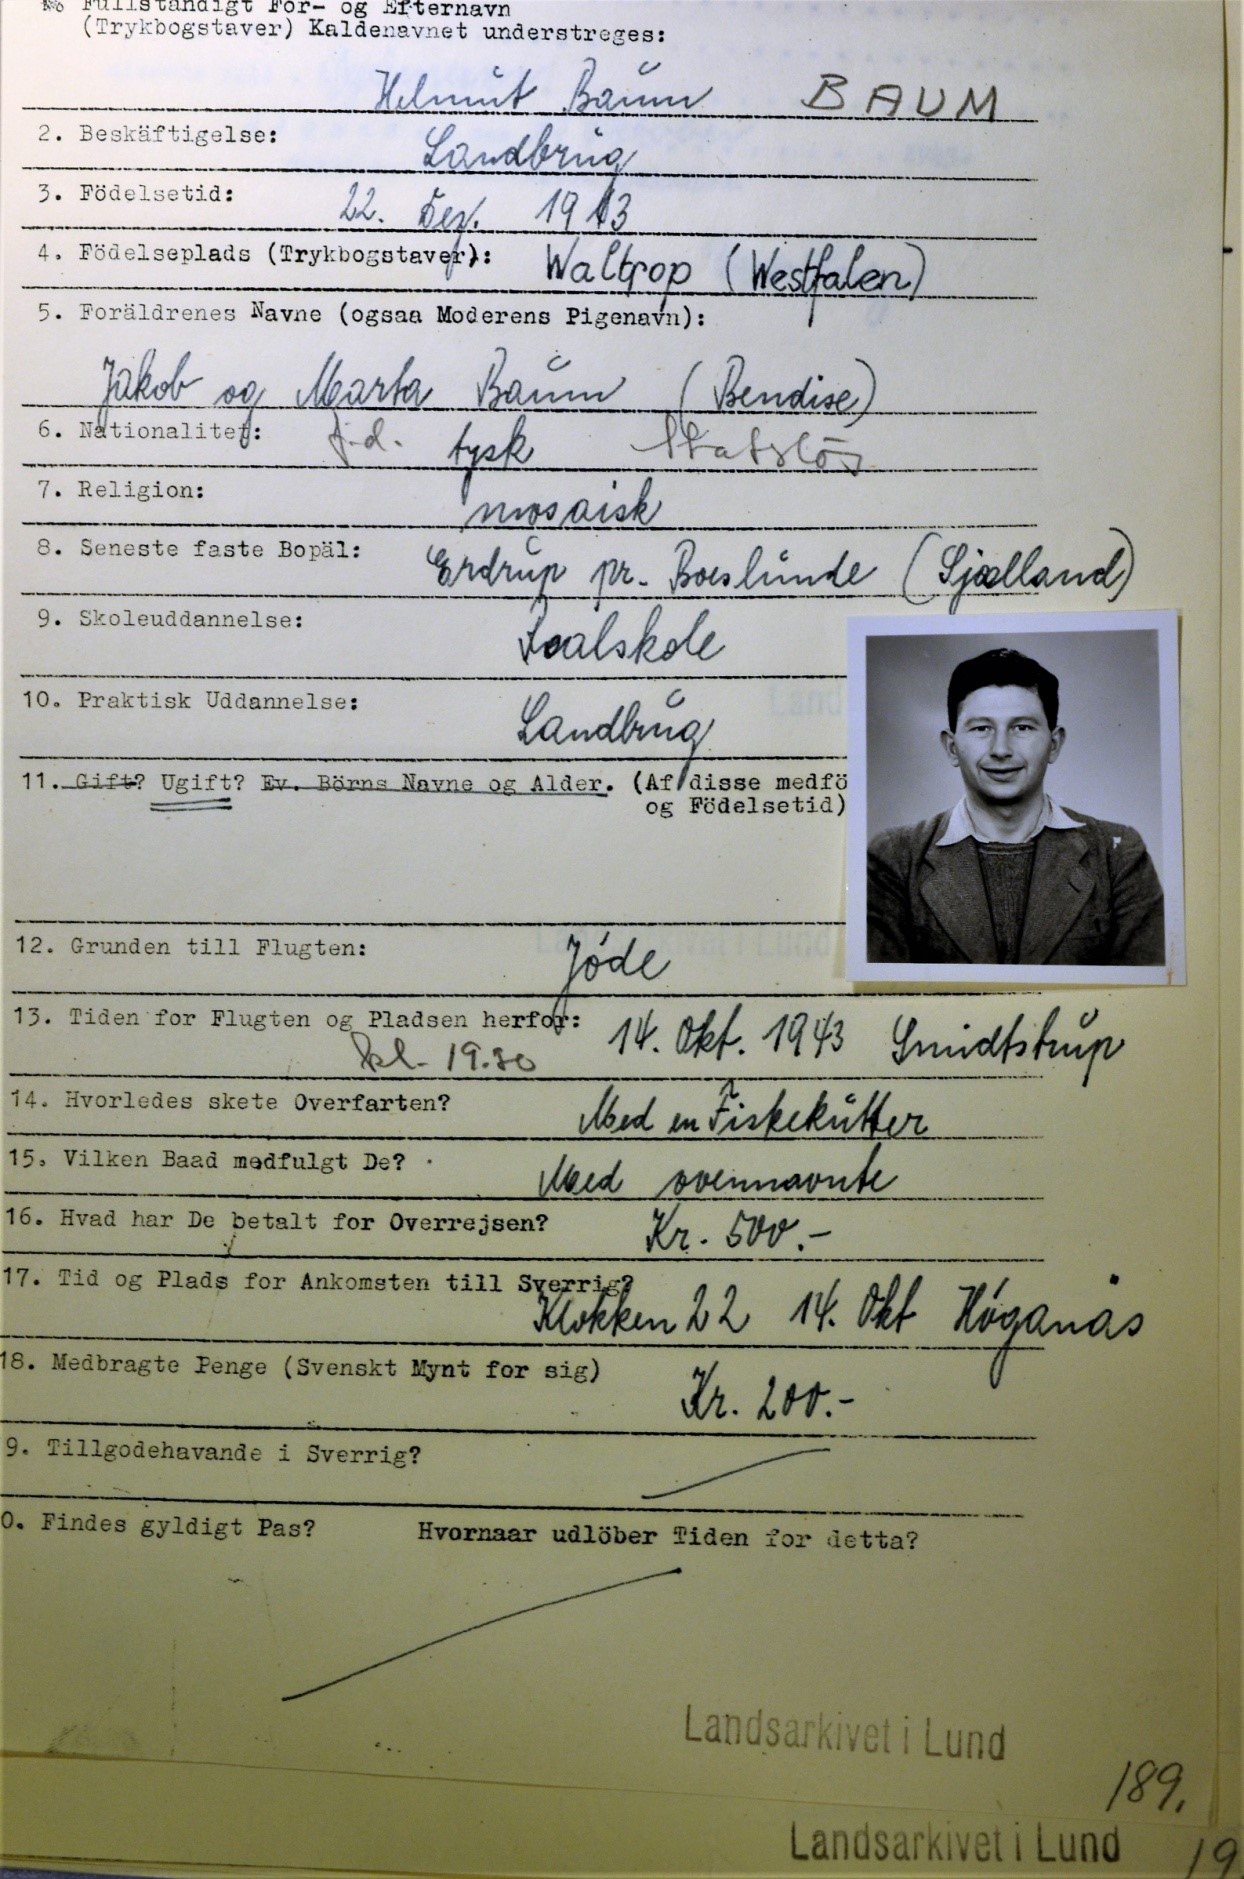 Fullständigt För- og Efternavn
(Trykbogstaver) Kaldenavnet understreges:
Helmut Baum BAUM
2. Beskäftigelse:
Landbrug
3. Födelsetid:
22. Dez. 1913
4. Födelseplads (Trykbogstaver): Waltrop (Westfalen)
5. Foräldrenes Navne (ogsaa Moderens Pigenavn):
Jakob og Marta Baum (Bendise)
6. Nationalitet: f.d. tysk Statslös
7. Religion:
mosaisk
8. Seneste faste Bopäl: Erdrup pr. Boeslunde (Sjælland)
9. Skoleuddannelse:
Realskole
10. Praktisk Uddannelse:
Landbrug
11. Gift? Ugift? Ev. Börns Navne og Alder. (Af disse medfö
og Födelsetid)
12. Grunden till Flugten: Jøde
13. Tiden for Flugten og Pladsen herfor: 14. Okt. 1943 Smidtstrup
kl. 19.30
14. Hvorledes skete Overfarten? Med en Fiskekutter
15. Vilken Baad medfulgt De? Med ovennavnte
16. Hvad har De betalt for Overrejsen? Kr. 500.-
17. Tid og Plads for Ankomsten till Sverrig?
Klokken 22 14. Okt Høganas
18. Medbragte Penge (Svenskt Mynt for sig)
Kr. 200.-
9. Tillgodehavande i Sverrig?
0. Findes gyldigt Pas? Hvornaar udlöber Tiden for detta?
Landsarkivet i Lund
189.
Landsarkivet i Lund 19